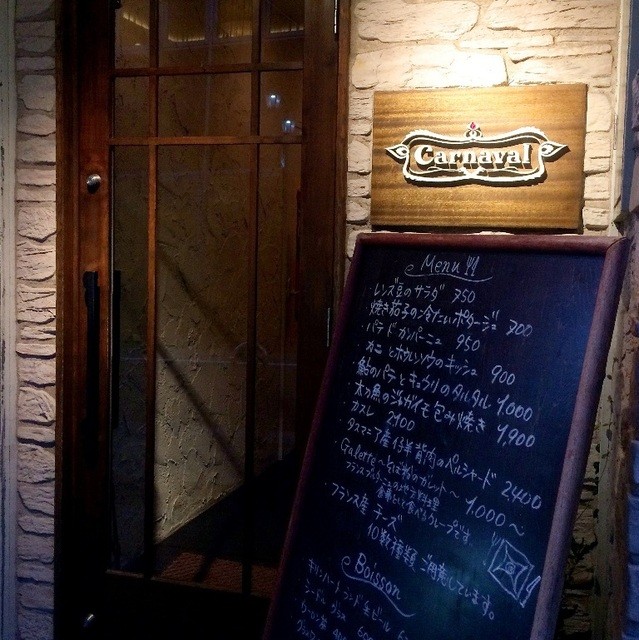 Carnaval
Menu!!
・レンズ豆のサラダ 750
・焼き茄子の冷たいポタージュ 700
・パテ ド カンパーニュ 950
・カニとホウレンソウのキッシュ 900
・鮎のパテとキュウリのタルタル 1,000
・太刀魚のジャガイモ包み焼き 1,900
・カスレ 2400
・タスマニア産仔羊背肉のペルシャード 2400
・Galette 〜そば粉のガレット〜 1,000〜
・フランス産 チーズ
10数種類 ご用意しています。
Boisson